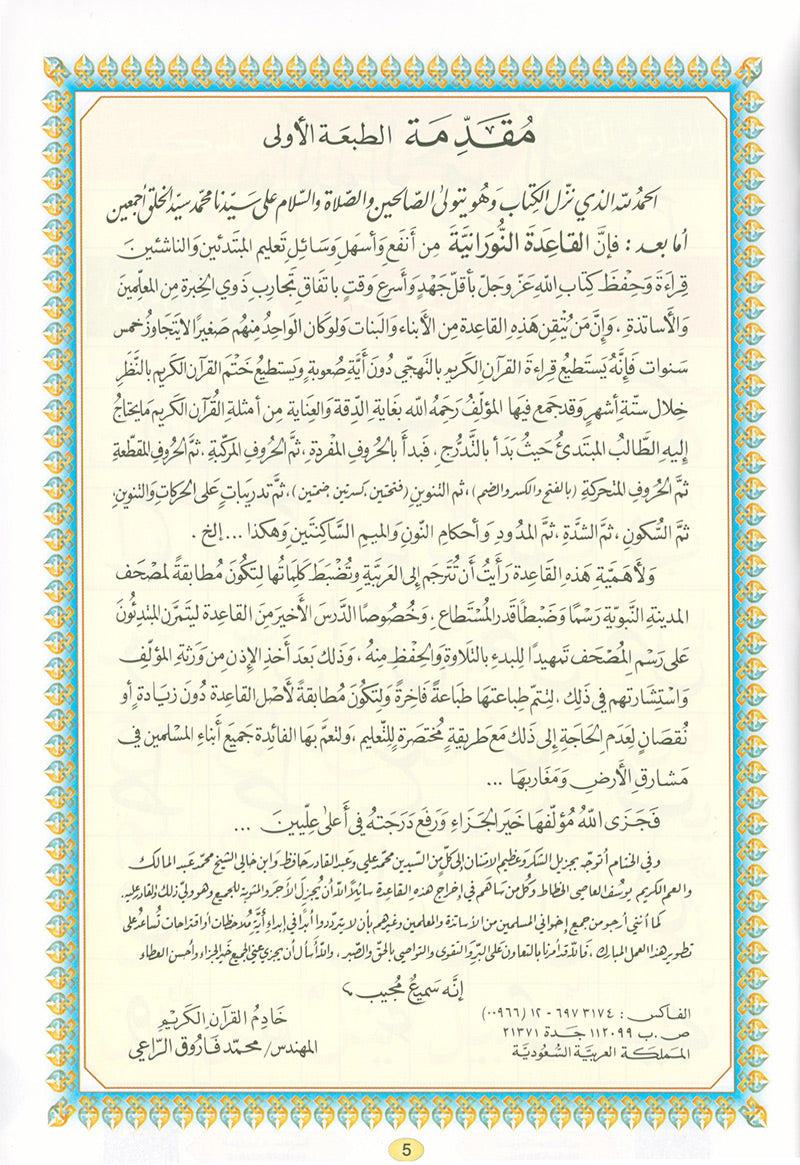 مُقَدِّمَة الطبعَة الأولى
الحمدُ للهِ الذي نزّل الكِتاب وَهُو يتولى الصّالحين والصَّلاة والسَّلام على سَيِّدنا محمّد سيّد الخلق أجمعين
أما بعد : فإنَّ القاعِدَة النُّورَانيَّة مِن أنفَع وَأسهَل وَسَائل تَعليم المبتدئين والناشئين
قِراءَةً وَحِفْظَ كِتاب اللهِ عَزّ وَجلّ بأقلّ جَهْدٍ وَأسرع وَقتٍ باتفاق تَجارب ذَوي الخِبرة مِن المعلّمين
وَالأسَاتذة ، وَإنَّ مَن يُتْقِن هَذِهِ القاعِدة مِن الأبناء وَالبَنات وَلو كان الواحِدُ مِنهُم صَغيرًا لا يَتجاوزُ خمس
سَنوات فإنَّهُ يَستَطيعُ قِراءَةَ القرآن الكَريم بالتهجّي دُونَ أيَّةِ صُعوبةٍ وَيستَطيعُ خَتْم القرآن الكَريم بالنَّظَر
خِلال ستَّة أشهرٍ وَقد جمَع فيهَا المؤلّف رَحِمَهُ الله بغَاية الدِّقة وَالعِناية مِن أمثلة القُرآن الكَريم مَا يَحتاجُ
إليهِ الطَّالبُ المبتَدئُ حيثُ بَدأ بالتَّدرُّج ، فَبدأ بالحُروف المفْردَة ، ثمَّ الحرُوف المركّبة ، ثمَّ الحرُوف المقطّعة
ثمَّ الحُروف المتَحركَةِ (بالفتح والكسر والضم) ، ثم التنوين (فتحتين، كسرتين، ضمتين) ، ثمَّ تدريباتٍ على الحركاتِ وَالتنوين،
ثمَّ السُّكونِ ، ثمَّ الشدَّةِ ، ثمَّ المدُودِ وَأحكامِ النّون وَالميمِ السَّاكنتَين وَهكذا ... إلخ .
وَلأهَمّيةِ هذِهِ القَاعِدة رَأيتُ أن تُتَرجم إلى العَربيَّة وَتُضْبَطَ كَلِمَاتُها لِتكُونَ مُطابقةً لمصْحَف
المدينةِ النَّبَويَّةِ رَسْمًا وَضَبْطًا قَدر المُسْتَطاع ، وَخُصُوصًا الدَّرسَ الأخِير مِنَ القاعِدة ليتَمرَّن المبتدِئُونَ
عَلى رَسْمِ المُصْحَف تَمهيدًا للبدءِ بالتّلاوةِ وَالحِفْظِ مِنهُ ، وَذلكَ بَعدَ أخذِ الإذنِ مِن وَرَثةِ المؤلّف
وَاستشَارتهم في ذَلِكَ ، لِتتمّ طِباعتهَا طباعةً فَاخِرةً وَلتكُونَ مُطابقةً لأصْل القاعِدة دُونَ زيَادةٍ أو
نُقصَانٍ لِعَدمِ الحَاجةِ إلى ذَلكَ مَع طَريقةٍ مُختصَرةٍ للتَّعليم ، وَلتعُمَّ بهَا الفائِدة جَميعَ أبناءِ المسْلمين في
مَشارق الأرضِ وَمَغاربهَا ...
فَجَزى اللهُ مُؤلّفهَا خَيرَ الجَزاءِ وَرفعَ دَرَجتهُ في أعلى عِلّيينَ ...
وفي الختام أتوجّه بجزيل الشكر وعظيم الامتنان إلى كلٍّ من السيدين محمد علي وعبد القادر حافظ وابن خالي الشيخ محمد عبد المالك
والعم الكريم يوسُف العاصي الخطاط وكُل من ساهَم في إخراج هذه القاعدة سائلاً اللهَ أن يُجزلَ الأجرَ والمثوبة للجميع وهو وليّ ذلك والقادر عليه.
كما أنني أرجو من جميع إخواني المسلمين من الأساتذة والمعلمين وغيرهم بأن لا يتردّدوا أبدًا في إبداء أيّة مُلاحظات أو اقتراحات تُساعدُ على
تطوير هذا العمل المبارك ، فاللهُ قد أمرنا بالتعاون على البرّ والتقوى والتواصي بالحق والصّبر ، واللهَ أسأل أن يجزي عني الجميع خَير الجزاء وأحسن العطاء
إنَّه سَميعٌ مُجيب
الفاكس : ٦٩٧٣١٧٤ - ١٢ (٠٠٩٦٦)
ص . ب ١١٢٠٩٩ جَدة ٢١٣٧١
المَملكَة العَربيَّة السُّعُوديَّة
خَادِمُ القرآنِ الكَريمِ
المهندِس / محمّد فَاروق الرَّاعي
5